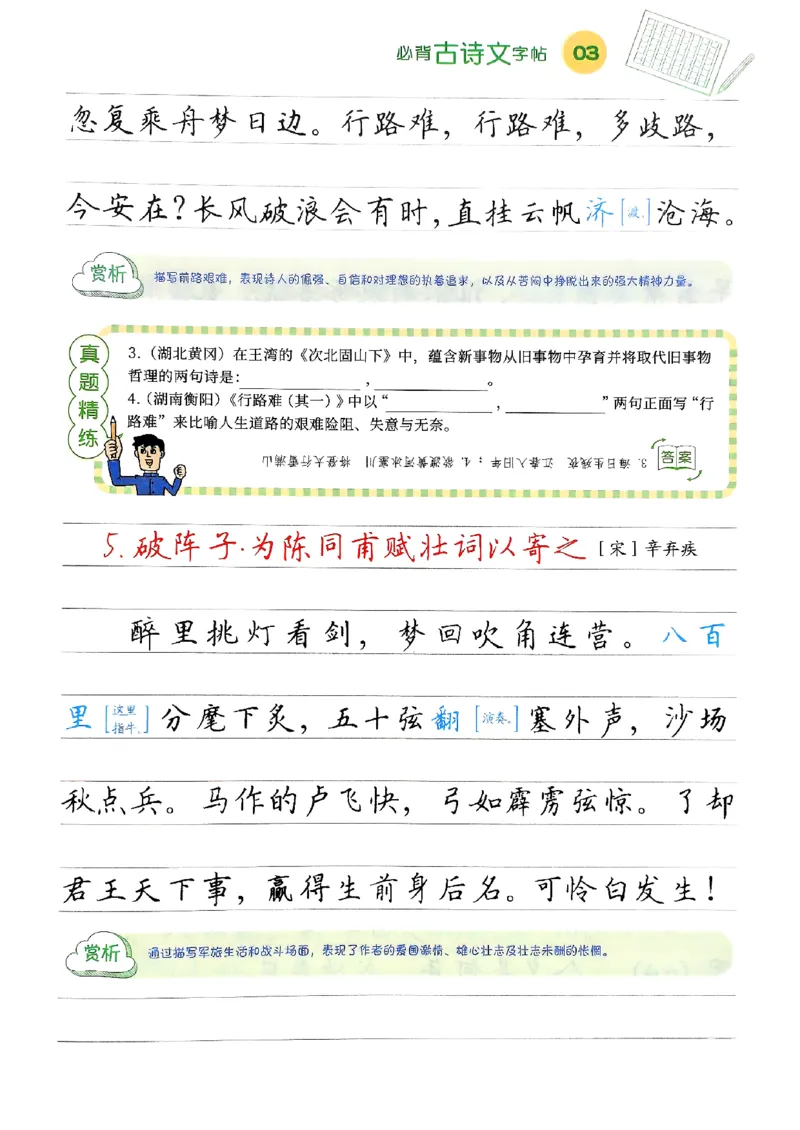 必背古诗文字帖 03
忽复乘舟梦日边。行路难，行路难，多歧路，
今安在？长风破浪会有时，直挂云帆济[渡。]沧海。
赏析 描写前路艰难，表现诗人的倔强、自信和对理想的执着追求，以及从苦闷中挣脱出来的强大精神力量。
真题精练
3.（湖北黄冈）在王湾的《次北固山下》中，蕴含新事物从旧事物中孕育并将取代旧事物
哲理的两句诗是：____________，____________。
4.（湖南衡阳）《行路难（其一）》中以“____________，____________”两句正面写“行
路难”来比喻人生道路的艰难险阻、失意与无奈。
答案 3. 海日生残夜 江春入旧年；4. 欲渡黄河冰塞川 将登太行雪满山
5. 破阵子·为陈同甫赋壮词以寄之 [宋] 辛弃疾
醉里挑灯看剑，梦回吹角连营。八百
里[这里指牛。]分麾下炙，五十弦翻[演奏。]塞外声，沙场
秋点兵。马作的卢飞快，弓如霹雳弦惊。了却
君王天下事，赢得生前身后名。可怜白发生！
赏析 通过描写军旅生活和战斗场面，表现了作者的爱国激情、雄心壮志及壮志未酬的怅惘。